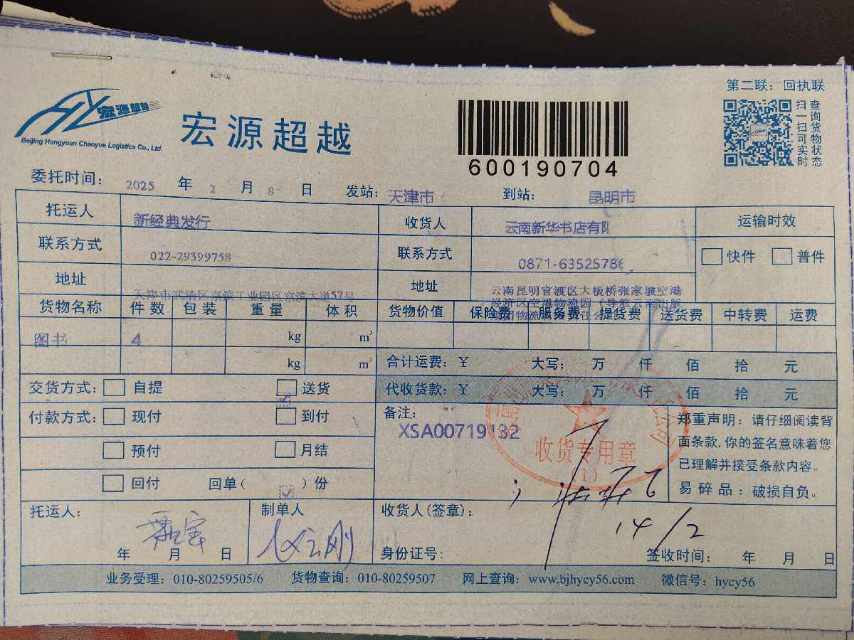 第二联：回执联
宏源超越
Beijing Hongyuan Chaoyue Logistics Co., Ltd.
宏源超越
600190704
扫一扫 查询货物状态
委托时间： 2025 年 2 月 8 日 发站： 天津市 到站： 昆明市
托运人 新经典发行 收货人 云南新华书店有限 运输时效
联系方式 022-29399758 联系方式 0871-63525786 快件 普件
地址 地址 云南昆明官渡区大板桥张家坡空港
货物名称 件数 包装 重量 体积 货物价值 保险费 服务费 提货费 送货费 中转费 运费
图书 4 kg m³
kg m³ 合计运费：￥ 大写： 万 仟 佰 拾 元
交货方式： 自提 送货 代收货款：￥ 大写： 万 仟 佰 拾 元
付款方式： 现付 到付 备注：
XSA00719132
预付 月结
回付 回单（ ）份
收货专用章
(1)
郑重声明：请仔细阅读背
面条款，你的签名意味着您
已理解并接受条款内容。
易碎品：破损自负。
托运人： 制单人 收货人(签章)：
14/2
年 月 日 身份证号： 签收时间： 年 月 日
业务受理：010-80259505/6 货物查询：010-80259507 网上查询：www.bjhycy56.com 微信号：hycy56